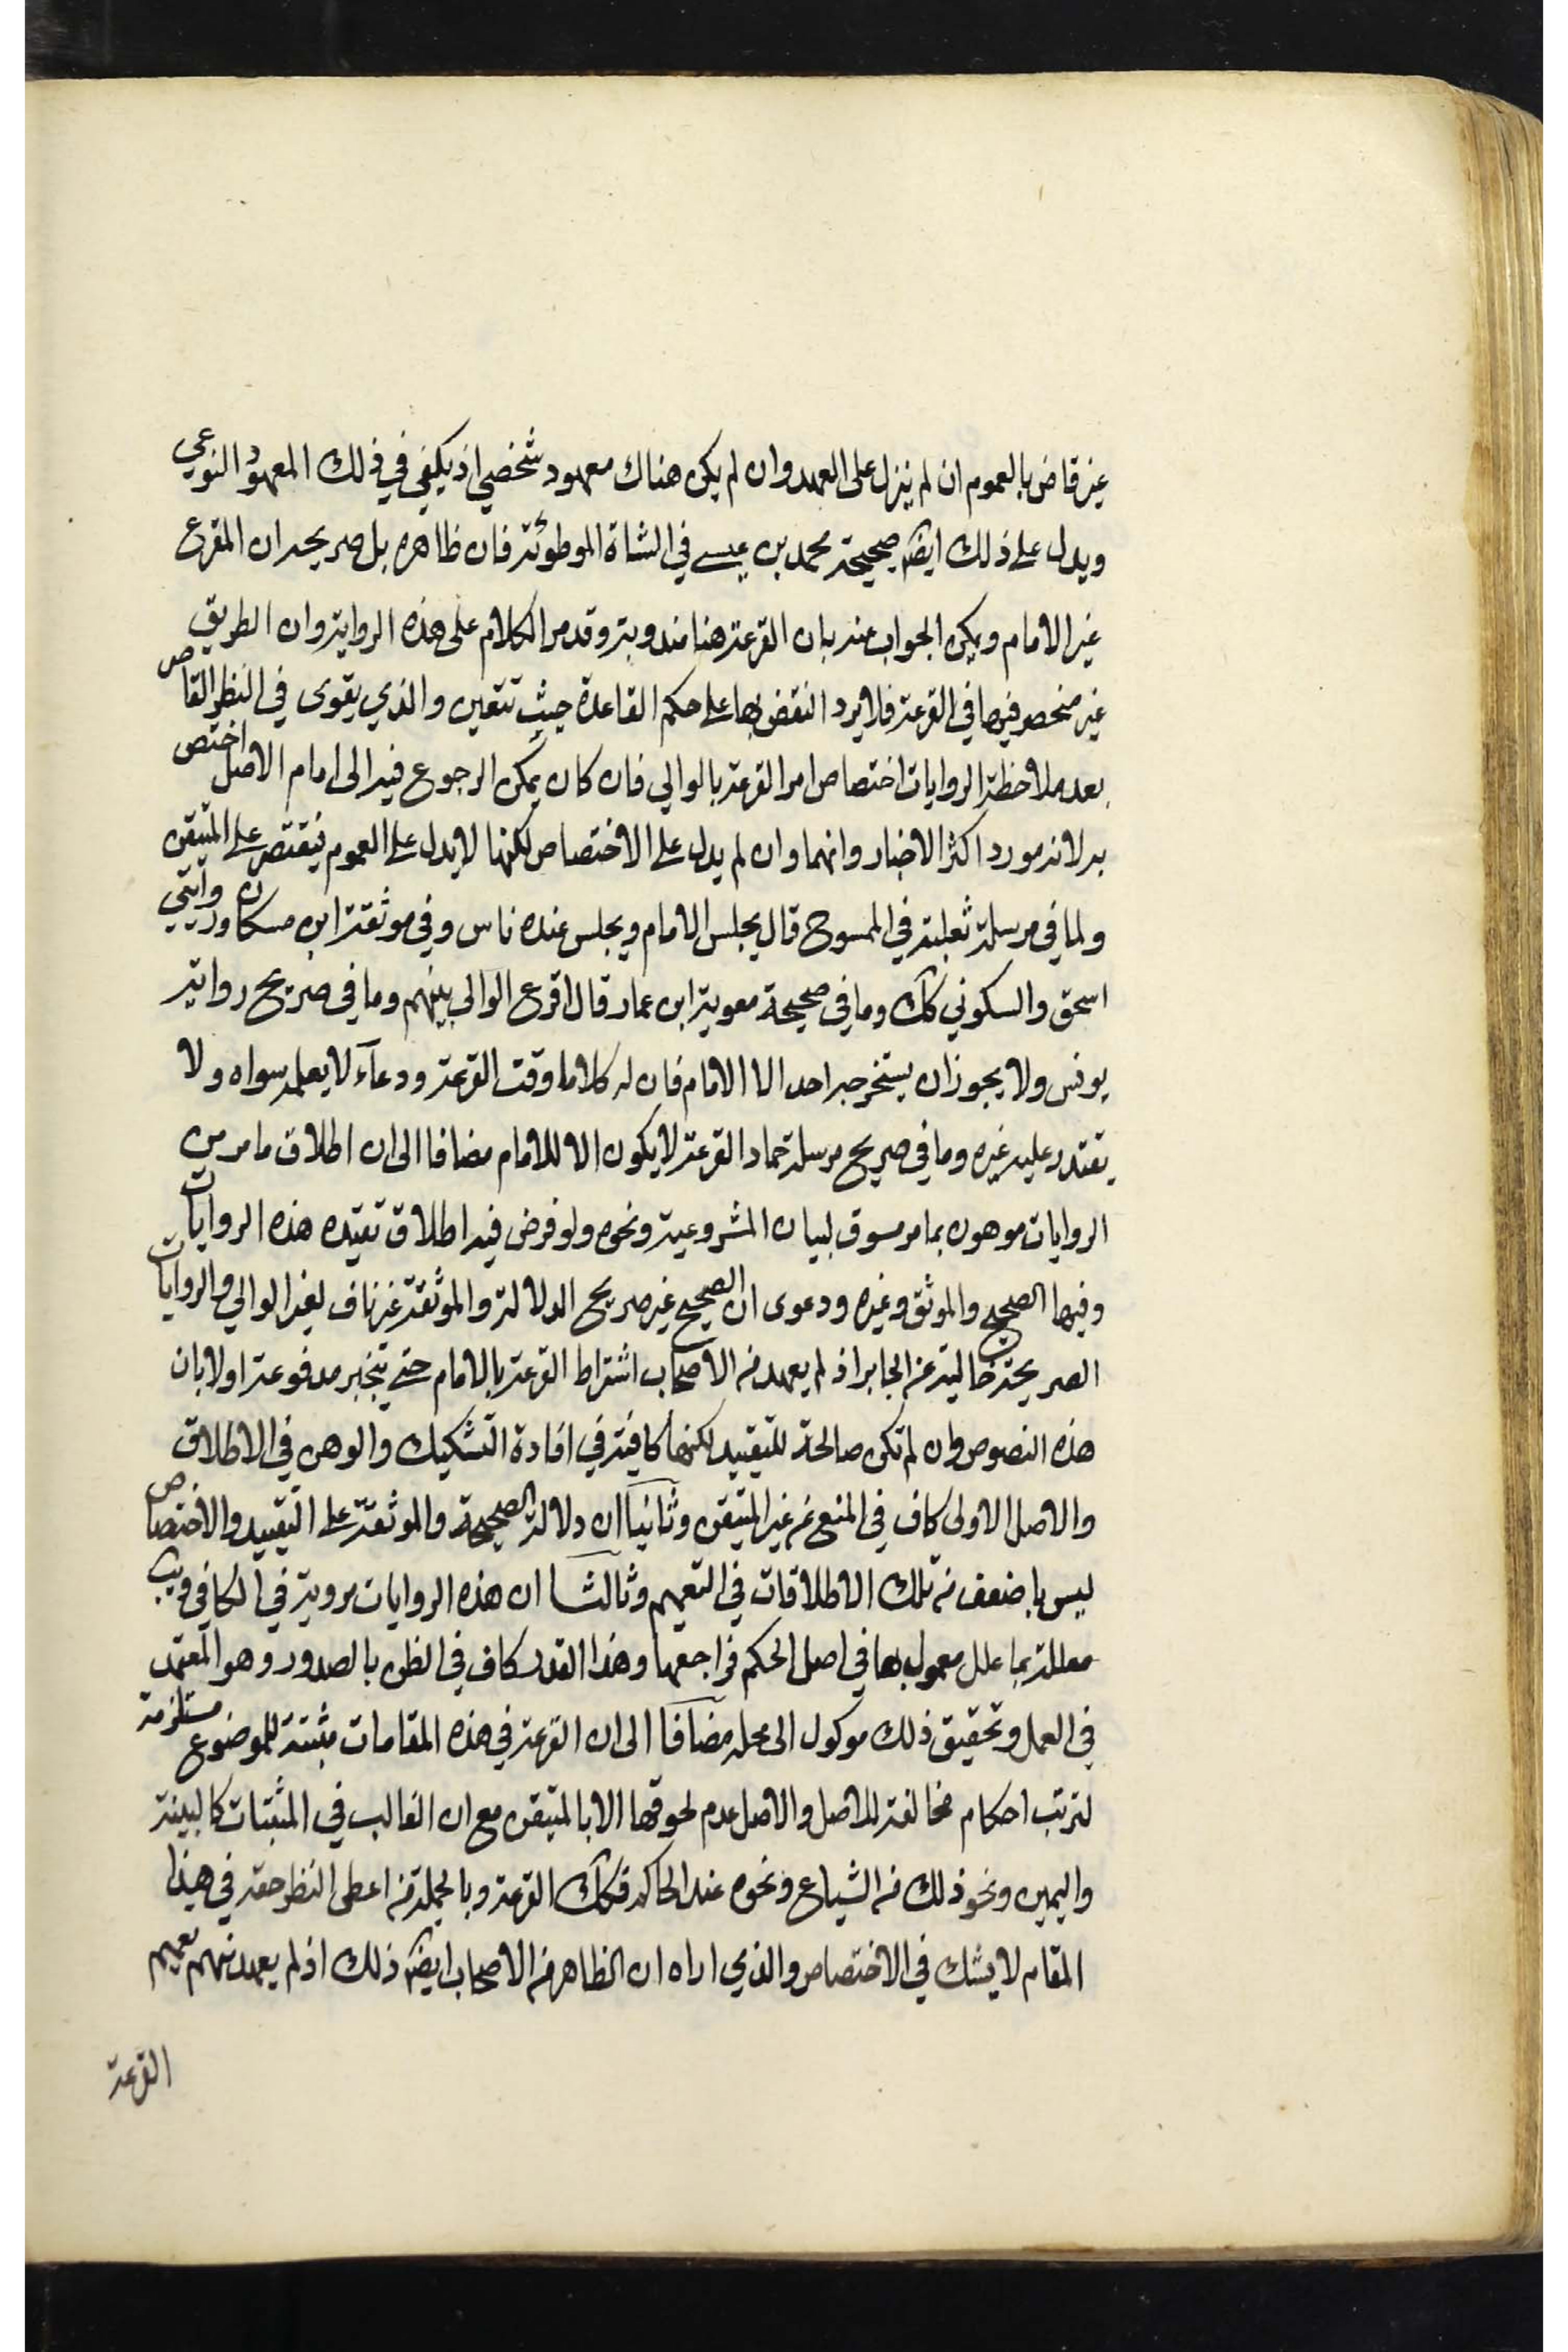 غير قاض بالعموم ان لم ينزل على العهد وان لم يكن هناك معهود شخصي اذ يكفي في ذلك المعهود النوعي
ويدل على ذلك ايضا صحيحة محمد بن عيسى في الشاة الموطوئة فان ظاهره بل صريحه ان المقرع
غير الامام ويمكن الجواب عنه بان القرعة هنا مندوبة وقد مر الكلام على هذه الرواية وان الطريق
غير منحصر فيها في القرعة فلا يرد النقض بها على حكم القاعدة حيث تتعين والذي يقوى في النظر القاصر
بعد ملاحظة الروايات اختصاص امر القرعة بالوالي فان كان يمكن الرجوع فيه الى امام الاصل اختص
به لانه مورد اكثر الاخبار وانها وان لم يدل على الاختصاص لكنها لا يدل على العموم فيقتصر على المتيقن
ولما في مرسلة ثعلبة في الممسوح قال يجلس الامام ويجلس عنده ناس وفي موثقة ابن مسكان وروايتي
اسحق والسكوني كك وما في صحيحة معوية ابن عمار قال اقرع الوالي بينهم وما في صريح رواية
يونس ولا يجوز ان يستخرجه احد الا الامام فان له كلاما وقت القرعة ودعآء لا يعلمه سواه ولا
يقتدر عليه غيره وما في صريح مرسلة حماد القرعة لا يكون الا للامام مضافا الى ان اطلاق ما مر من
الروايات موهون بما مر مسوق لبيان المشروعية ونحوه ولو فرض فيه اطلاق تقيده هذه الروايات
وفيها الصحيح والموثق وغيره ودعوى ان الصحيح غير صريح الدلالة والموثقة غير ناف لغير الوالي والروايات
الصريحة خالية عن الجابر اذ لم يعهد من الاصحاب اشتراط القرعة بالامام حتى ينجبر مدفوعة اولا بان
هذه النصوص وان لم تكن صالحة للتقييد لكنها كافية في افادة التشكيك والوهن في الاطلاق
والاصل الاولى كاف في المنع عن غير المتيقن وثانيا ان دلالة الصحيحة والموثقة على التقييد والاختصاص
ليس باضعف من تلك الاطلاقات في التعميم وثالثا ان هذه الروايات مروية في الكافي ويب
معللة بما علل معمول بها في اصل الحكم فراجعها وهذا القدر كاف في الظن بالصدور وهو المعتمد
في العمل وتحقيق ذلك موكول الى محله مضافا الى ان القرعة في هذه المقامات مثبتة للموضوع مستلزمة
لترتب احكام مخالفة للاصل والاصل عدم لحوقها الا بالمتيقن مع ان الغالب في المثبتات كالبينة
واليمين ونحو ذلك من الشياع ونحوه عند الحاكم فكك القرعة وبالجملة من اعطى النظر حقه في هذا
المقام لا يشك في الاختصاص والذي اراه ان الظاهر من الاصحاب ايضا ذلك اذ لم يعهد منهم تعميم
القرعة